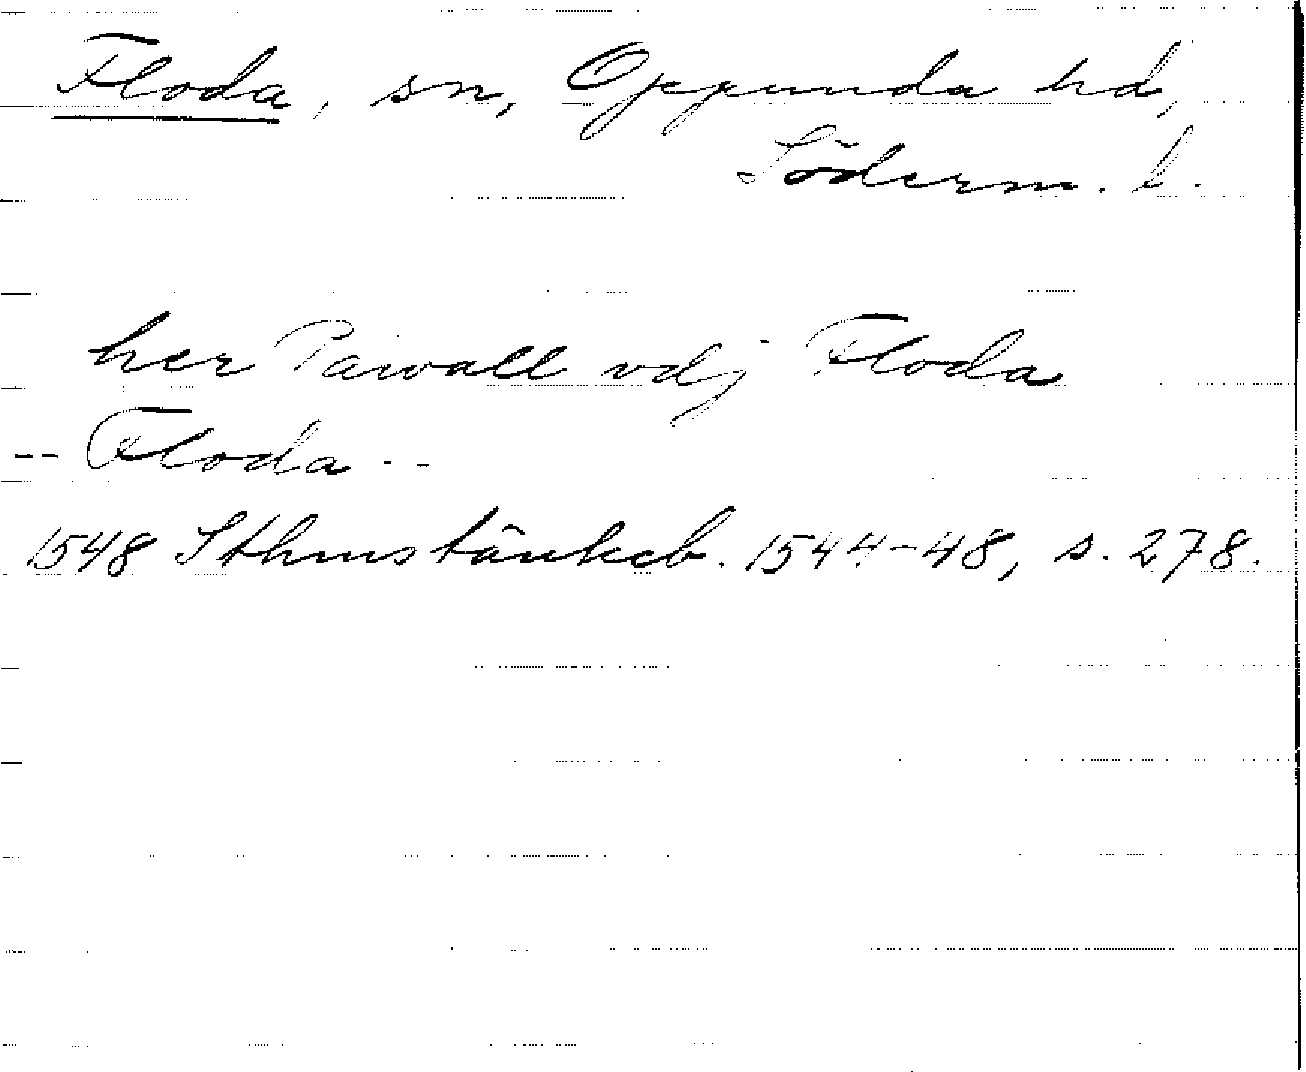 Floda, sn, Oppunda hd,
Söderm. l.
her Pawall vdj Floda
-- Floda --
1548 Sthms tänkeb. 1544-48, s. 278.